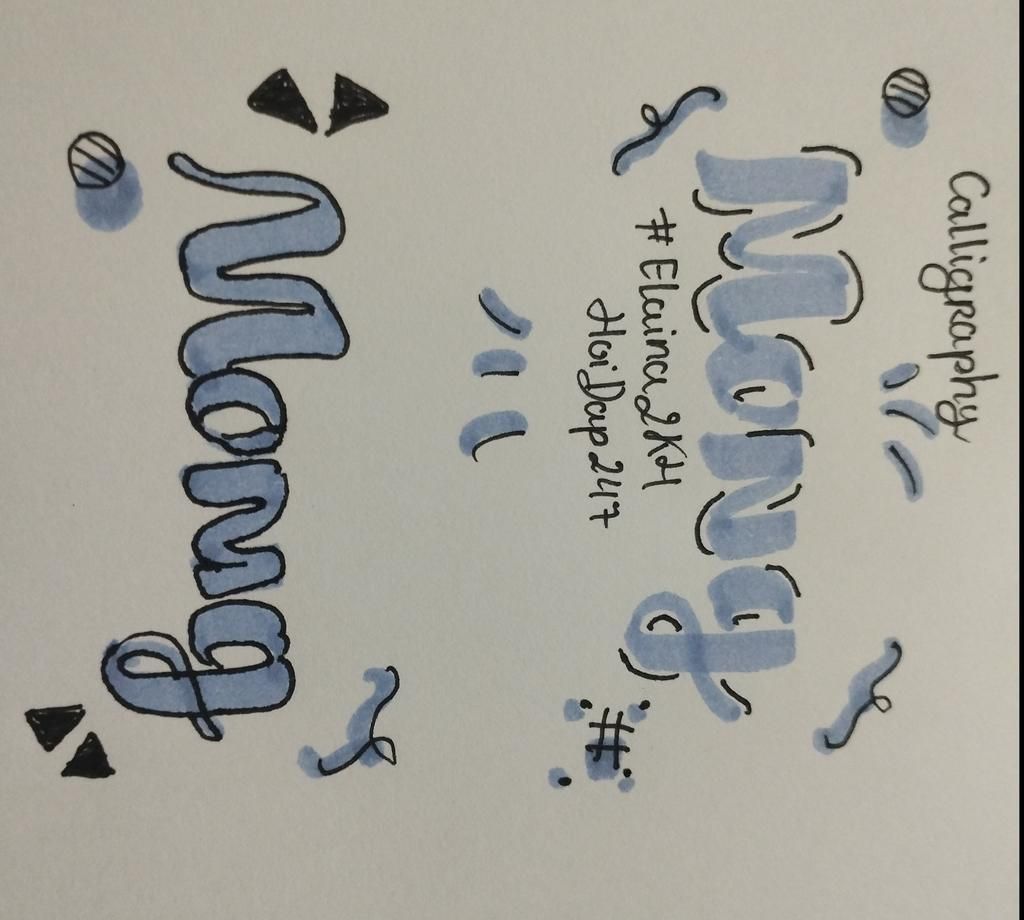 Calligraphy
Mong
#Elaina2K4
HoiDap247
#
Mong